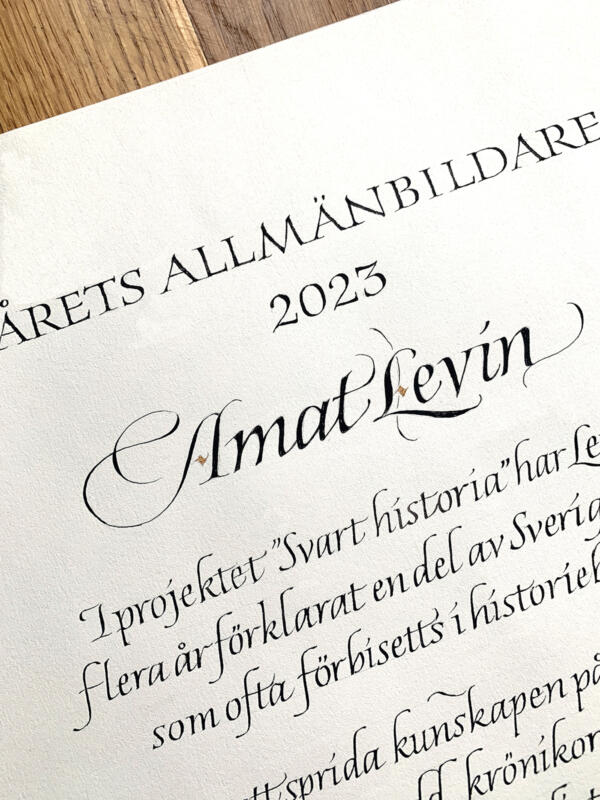 ÅRETS ALLMÄNBILDARE
2023
Amat Levin
I projektet ”Svart historia” har Le
flera år förklarat en del av Sverig
som ofta förbisetts i historieb
tt sprida kunskapen på
krönikor